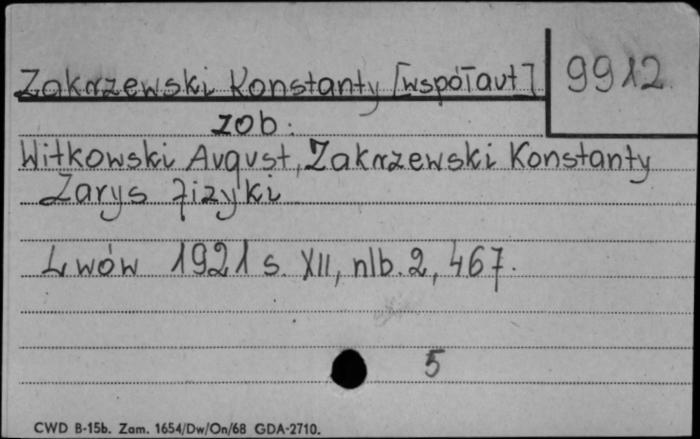 Zakrzewski Konstanty [współaut] 9912
zob.:
Witkowski August, Zakrzewski Konstanty
Zarys fizyki
Lwów 1921 s. XII, nlb. 2, 467.
5
CWD B-15b. Zam. 1654/Dw/On/68 GDA-2710.